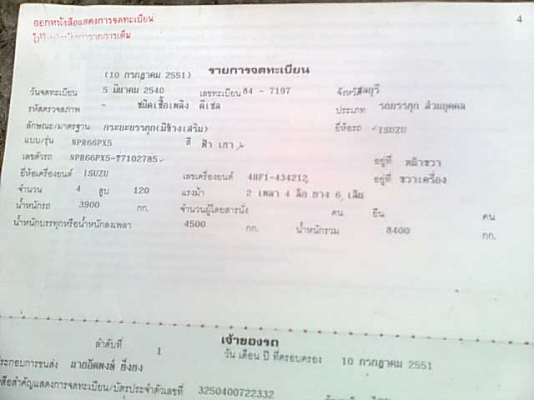 4
ออกหนังสือแสดงการจดทะเบียน
(10 กรกฎาคม 2551) รายการจดทะเบียน
วันจดทะเบียน 5 มีนาคม 2540 เลขทะเบียน 84 - 7197 จังหวัด ชลบุรี
รหัสตรวจสภาพ - ชนิดเชื้อเพลิง ดีเซล ประเภท รถบรรทุก ส่วนบุคคล
ลักษณะ/มาตรฐาน กระบะบรรทุก(มีข้างเสริม) ยี่ห้อรถ ISUZU
แบบ/รุ่น NPR66PX5 สี ฟ้า เทา
เลขตัวรถ NPR66PX5-77102785 อยู่ที่ หน้าขวา
ยี่ห้อเครื่องยนต์ ISUZU เลขเครื่องยนต์ 4HF1-434212 อยู่ที่ ขวาเครื่อง
จำนวน 4 สูบ 120 แรงม้า 2 เพลา 4 ล้อ ยาง 6 เส้น
น้ำหนักรถ 3900 กก. จำนวนผู้โดยสารนั่ง คน ยืน คน
น้ำหนักบรรทุกหรือน้ำหนักลงเพลา 4500 กก. น้ำหนักรวม 8400 กก.
เจ้าของรถ
ลำดับที่ 1 วัน เดือน ปี ที่ครอบครอง 10 กรกฎาคม 2551
ประกอบการขนส่ง
สือสำคัญแสดงการจดทะเบียน/บัตรประจำตัวเลขที่ 3250400722332